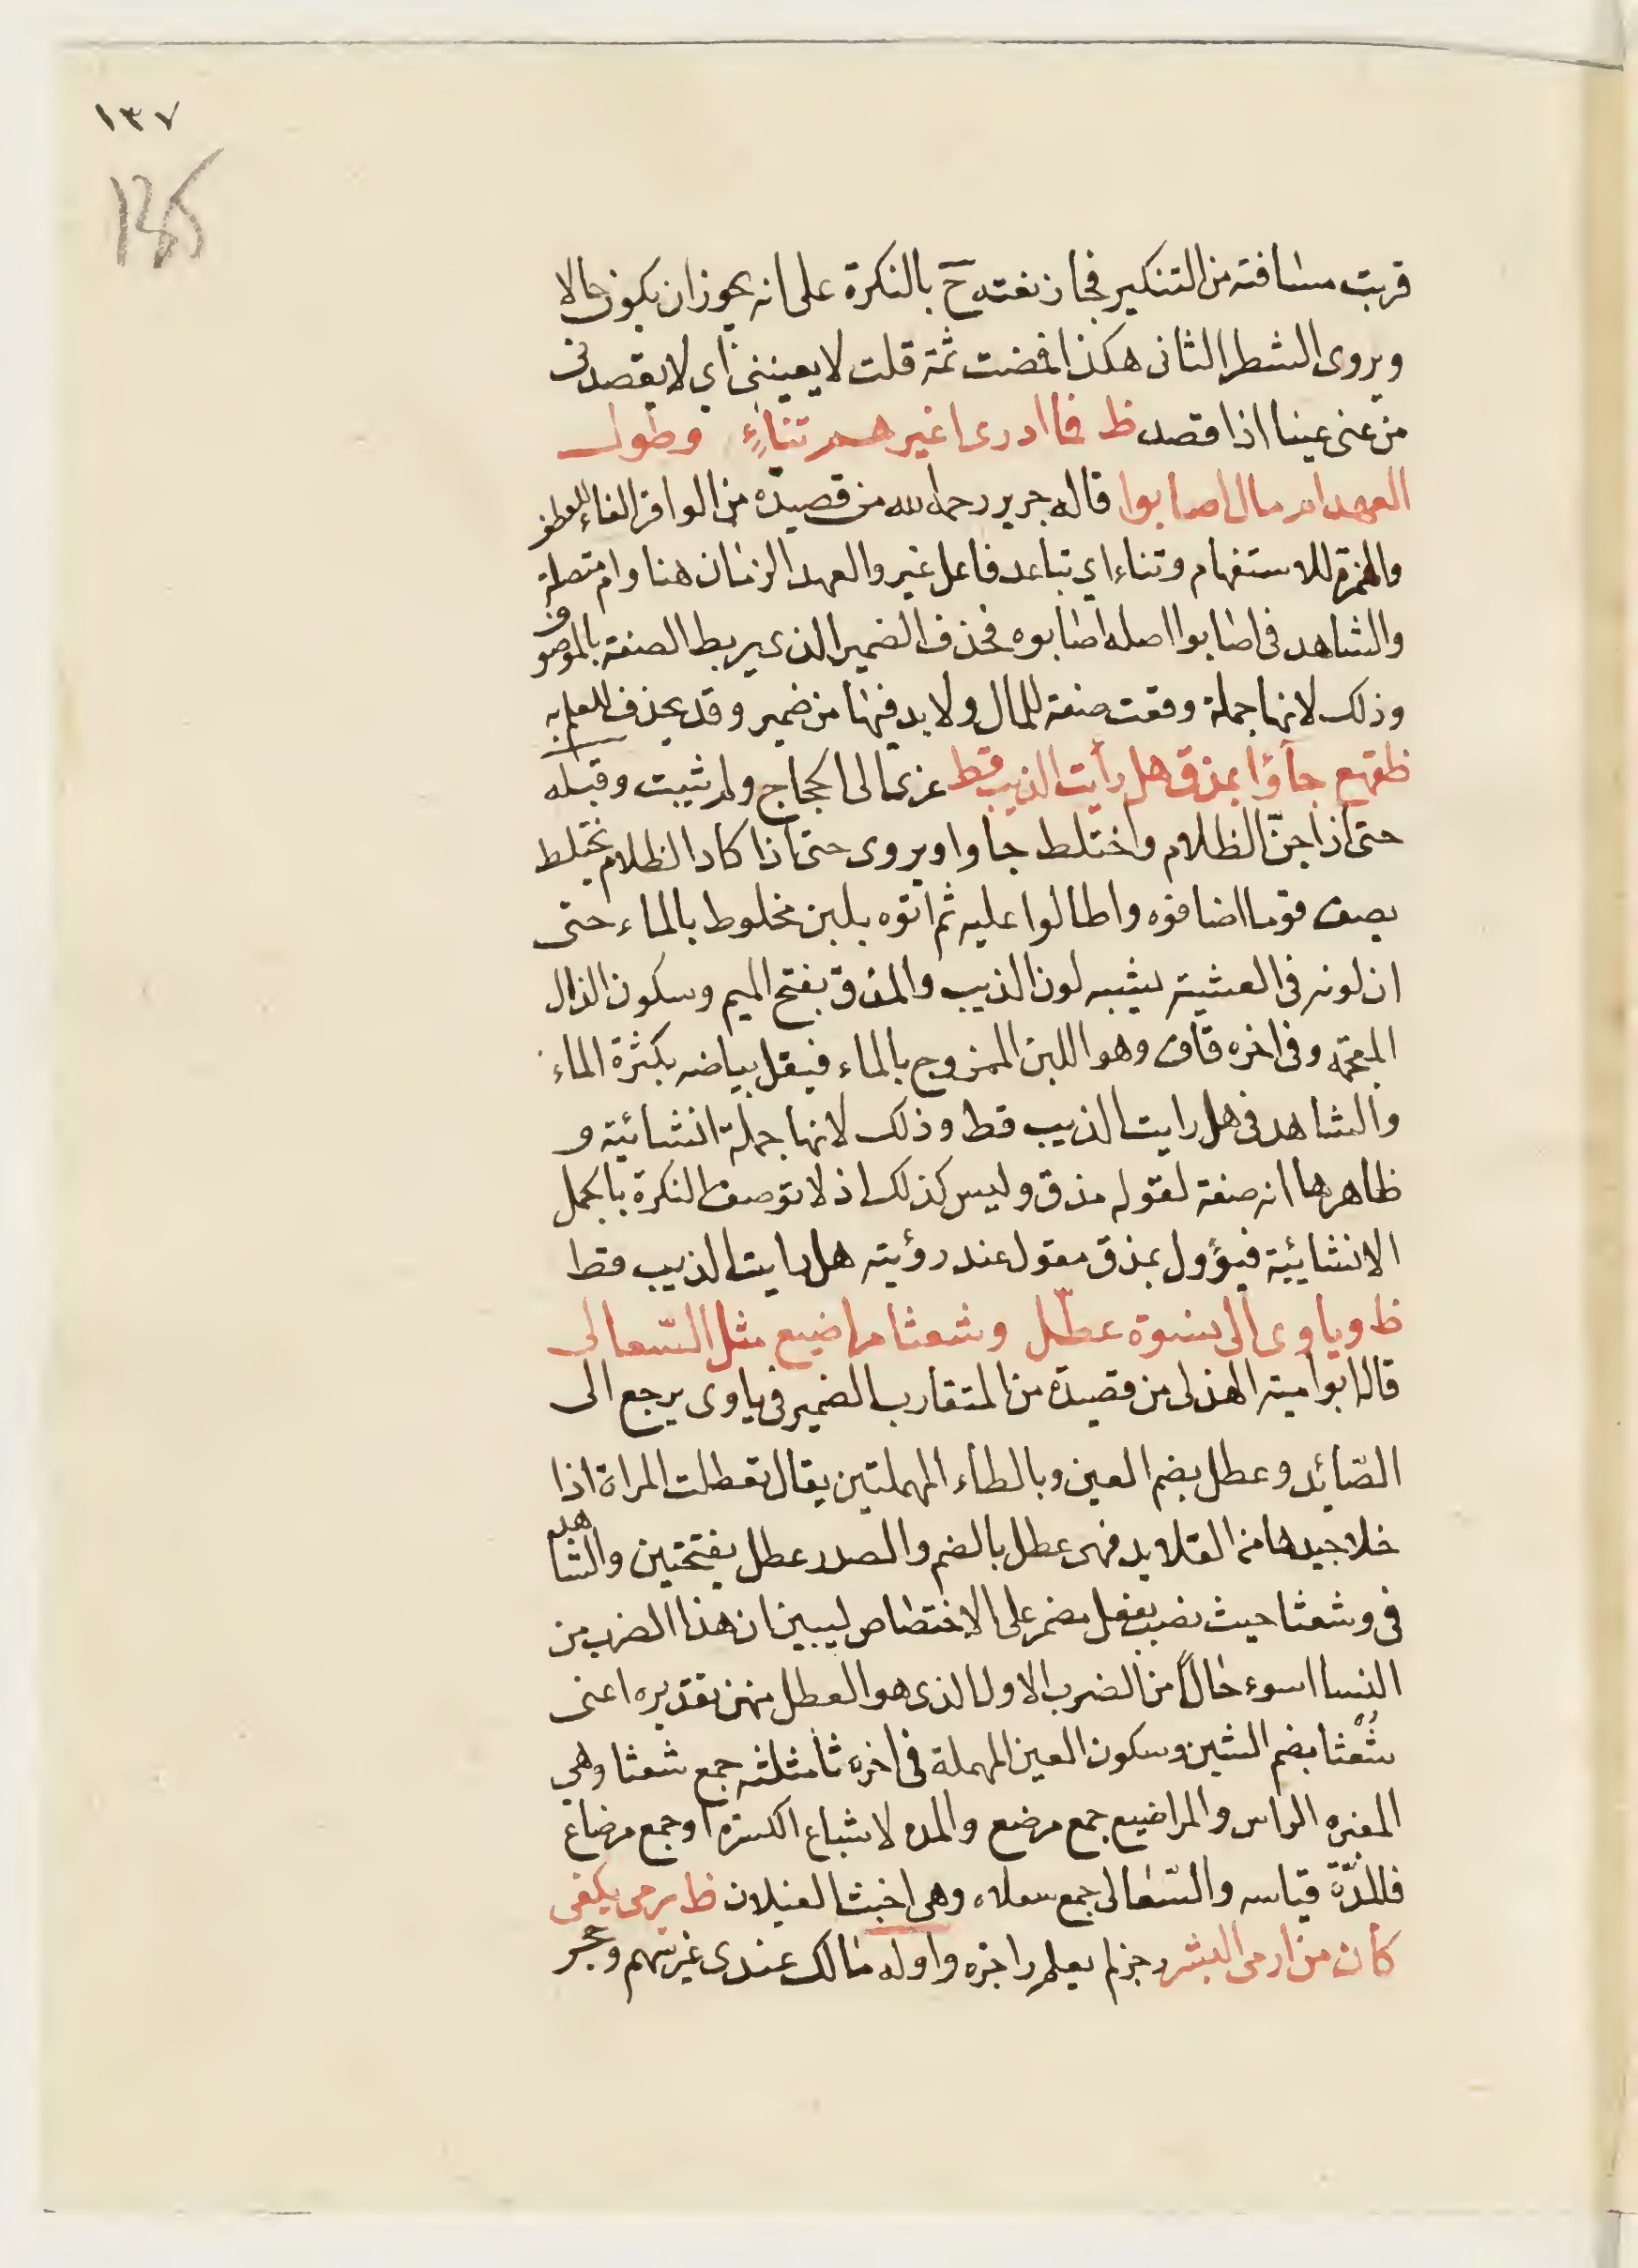 ١٣٧
135
قربت مسافته من التنكير فجاز نعته ح بالنكرة على انه يجوز ان يكون حالا
ويروى الشطر الثانى هكذا فمضت ثمة قلت لا يعنينى اي لا يقصدنى
من عنى عينا اذا قصد ظ فما ادرى اغيرهم تناءٍ وطول
العهد ام مال اصابوا قاله جرير رحمه الله من قصيدة من الوافر الفاء للعطف
والهمزة للاستفهام وتناء اي تباعد فاعل غير والعهد الزمان هنا وام متصلة
والشاهد فى اصابوا اصله اصابوه فحذف الضمير الذى يربط الصفة بالموصوف
وذلك لانها جملة وقعت صفة للمال ولا بد فيها من ضمير وقد يحذف للعلم به
ظقهع جاؤا بمذق هل رأيت الذيب قط عزى الى الحجاج ولم يثبت وقبله
حتى اذا جنّ الظلام واختلط جاوا ويروى حتى اذا كاد الظلام يختلط
يصف قوما اضافوه واطالوا عليه ثم اتوه بلبن مخلوط بالماء حتى
ان لونه فى العشية يشبه لون الذيب والمذق بفتح الميم وسكون الذال
المعجمة وفى اخره قاف وهو اللبن الممزوج بالماء فيقل بياضه بكثرة الماء
والشاهد فى هل رايت الذيب قط وذلك لانها جملة انشائية و
ظاهرها انه صفة لقوله مذق وليس كذلك اذ لا توصف النكرة بالجمل
الانشائية فيؤول بمذق مقول عند رؤيته هل رايت الذيب قط
ظ وياوى الى نسوة عطّل وشعثا مراضيع مثل السّعالى
قاله ابو امية الهذلى من قصيدة من المتقارب الضمير فى ياوى يرجع الى
الصّائد وعطل بضم العين وبالطاء المهملتين يقال تعطلت المراة اذا
خلا جيدها من القلايد فهى عطل بالضم والمصدر عطل بفتحتين والشاهد
فى وشعثا حيث نصب بفعل مضمر على الاختصاص ليبين ان هذا الضرب من
النسا اسوء حالاً من الضرب الاول الذى هو العطل منهن تقديره اعنى
شُعْثا بضم الشين وسكون العين المهملة فى اخره ثا مثلثه جمع شعثا وهي
المغبرة الراس والمراضيع جمع مرضع والمده لاشباع الكسرة او جمع مرضاع
فالمدّة قياسه والسّعالى جمع سعلاه وهى اخبث الغيلان ظ يرمى بكفى
كان من ارمى البشر رجز لم يعلم راجزه واوله مالك عندى غير سهم وحجر